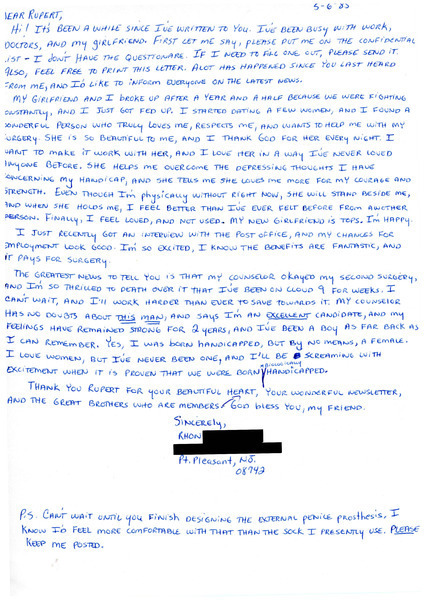 5-6-85
Dear Rupert,
Hi! It's been a while since I've written to you. I've been busy with work,
doctors, and my girlfriend. First let me say, please put me on the confidential
list - I don't have the questionare. If I need to fill one out, please send it.
Also, feel free to print this letter. Alot has happened since you last heard
from me, and I'd like to inform everyone on the latest news.
My girlfriend and I broke up after a year and a half because we were fighting
constantly, and I just got fed up. I started dating a few women, and I found a
wonderful person who truly loves me, respects me, and wants to help me with my
surgery. She is so beautiful to me, and I thank God for her every night. I
want to make it work with her, and I love her in a way I've never loved
anyone before. She helps me overcome the depressing thoughts I have
concerning my handicap, and she tells me she loves me more for my courage and
strength. Even though I'm physically without right now, she will stand beside me,
and when she holds me, I feel better than I've ever felt before from another
person. Finally, I feel loved, and not used. My new girlfriend is tops. I'm happy.
I just recently got an interview with the Post Office, and my chances for
employment look good. I'm so excited, I know the benefits are fantastic, and
it pays for surgery.
The greatest news to tell you is that my counselor okayed my second surgery,
and I'm so thrilled to death over it that I've been on cloud 9 for weeks. I
can't wait, and I'll work harder than ever to save towards it. My counselor
has no doubts about this man, and says I'm an excellent candidate, and my
feelings have remained strong for 2 years, and I've been a boy as far back as
I can remember. Yes, I was born handicapped, but by no means, a female.
I love women, but I've never been one, and I'll be screaming with
excitement when it is proven that we were born biologically handicapped.
Thank you Rupert for your beautiful heart, your wonderful newsletter,
and the great brothers who are members. God bless you, my friend.
Sincerely,
Rhon
Pt. Pleasant, N.J.
08742
P.S. Can't wait until you finish designing the external penile prosthesis, I
know I'd feel more comfortable with that than the sock I presently use. Please
keep me posted.